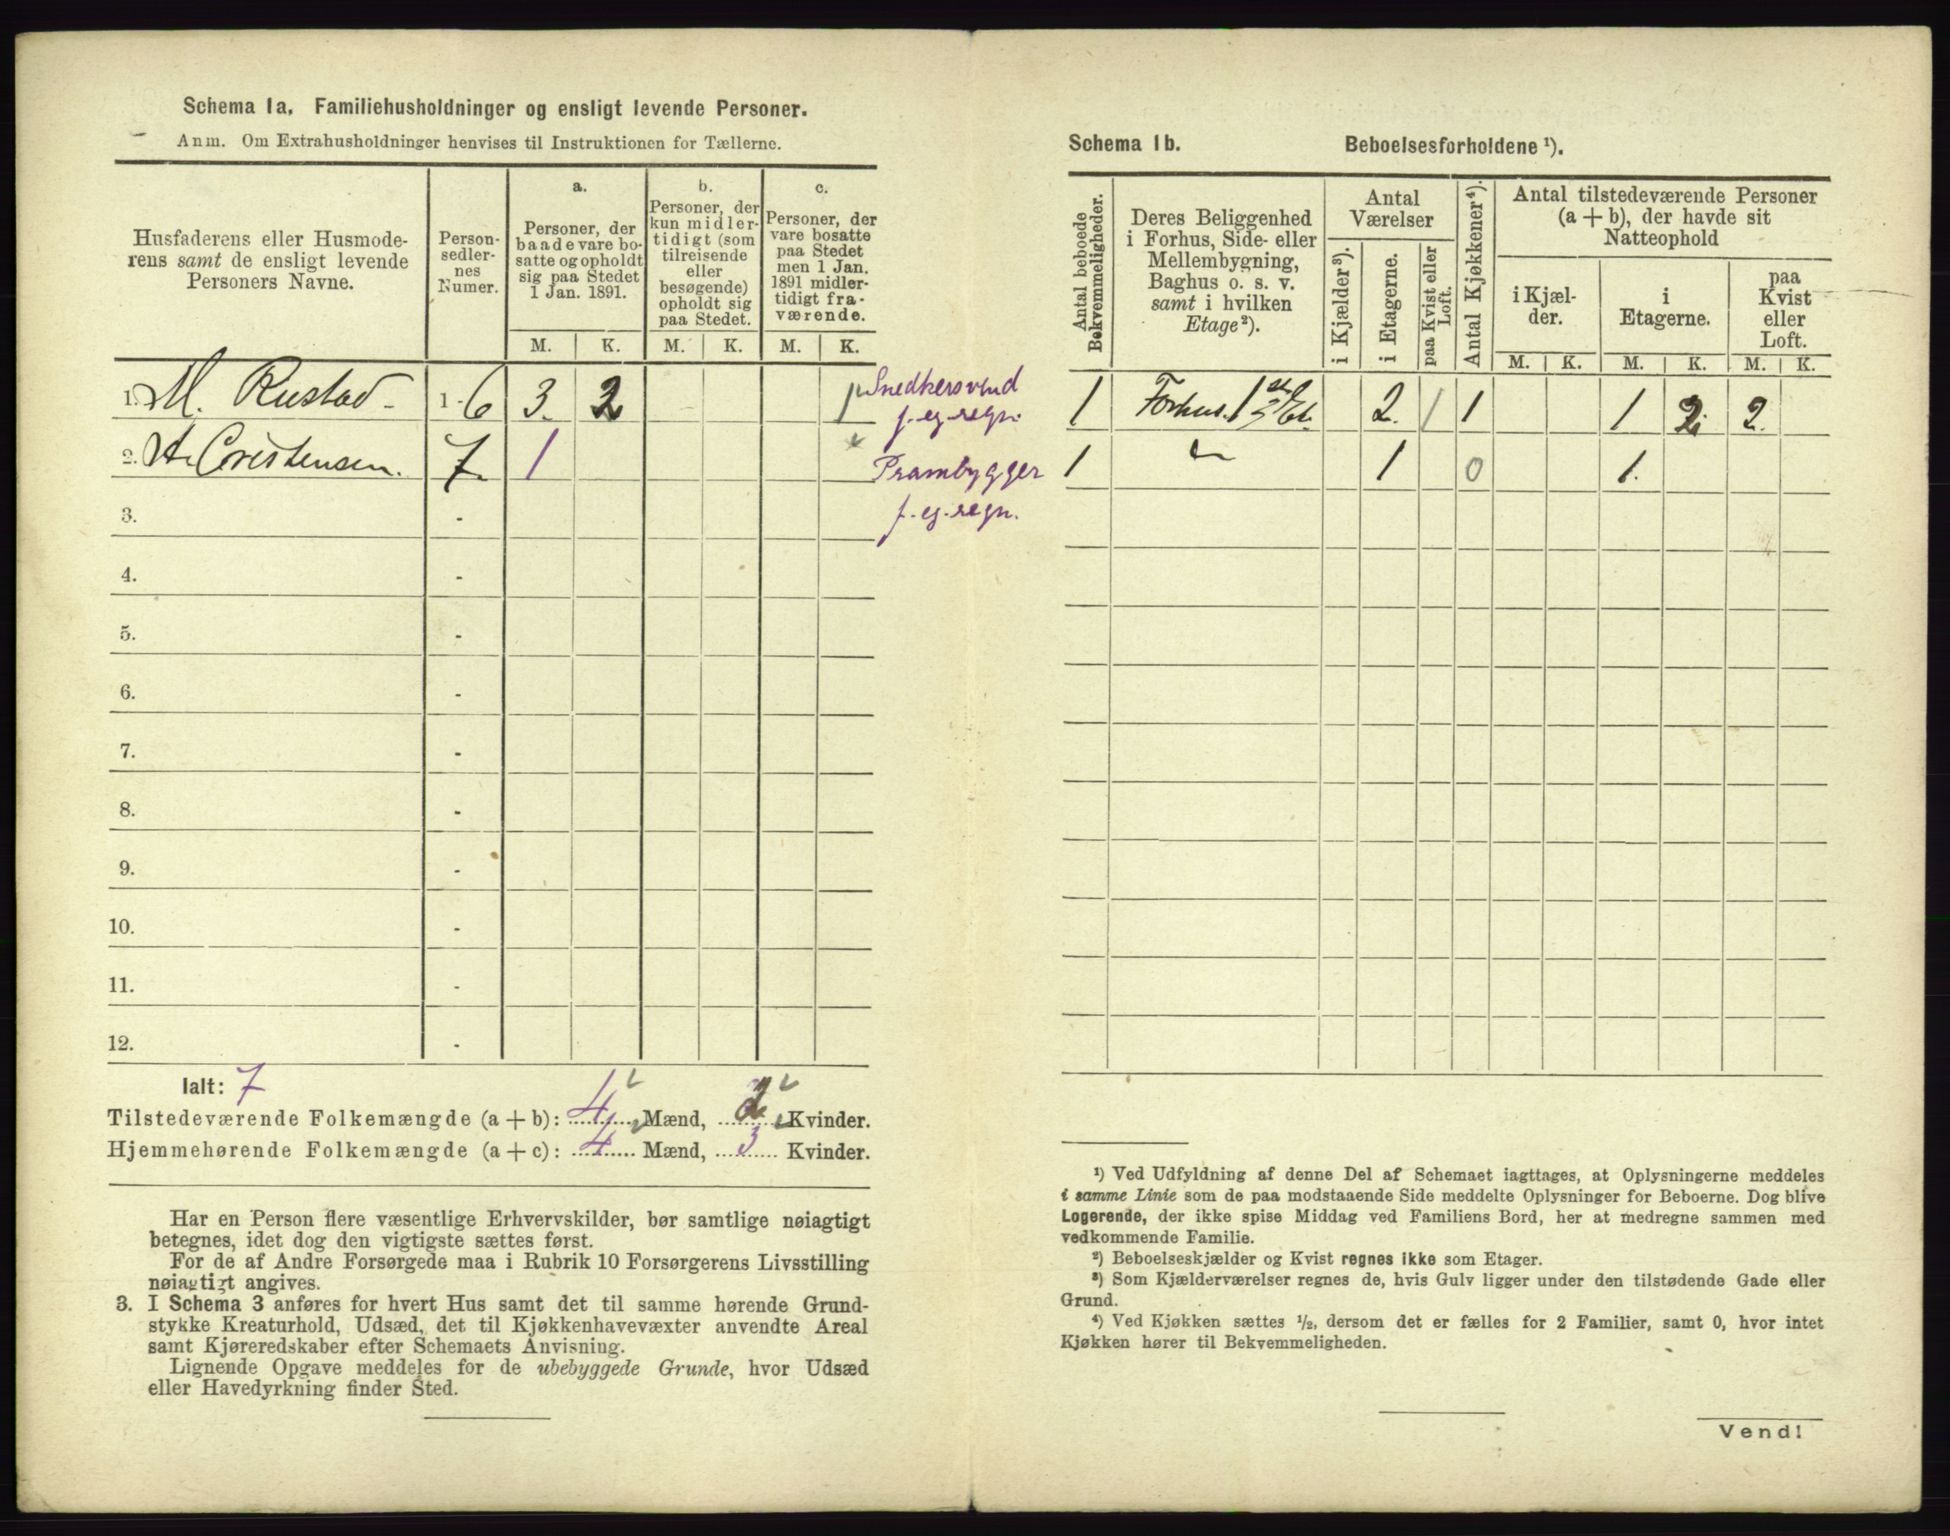 Schema 1a. Familiehusholdninger og ensligt levende Personer.
Anm. Om Extrahusholdninger henvises til Instruktionen for Tællerne.
Husfaderens eller Husmoderens samt de ensligt levende Personers Navne.
Personsedlernes Numer.
a.
Personer, der baade vare bosatte og opholdt sig paa Stedet 1 Jan. 1891.
b.
Personer, der kun midlertidigt (som tilreisende eller besøgende) opholdt sig paa Stedet.
c.
Personer, der vare bosatte paa Stedet men 1 Jan. 1891 midlertidigt fraværende.
M. K. M. K. M. K.
1. M. Rustad - 1-6 3. 2 1 Snedkersvend
f. eg. regn.
2. A. Cristensen. 7. 1 Prambygger
f. eg. regn.
3. -
4. -
5. -
6. -
7. -
8. -
9. -
10. -
11. -
12. -
Ialt: 7
Tilstedeværende Folkemængde (a + b): 4 Mænd, 2 Kvinder.
Hjemmehørende Folkemængde (a + c): 4 Mænd, 3 Kvinder.
Har en Person flere væsentlige Erhvervskilder, bør samtlige nøiagtigt
betegnes, idet dog den vigtigste sættes først.
For de af Andre Forsørgede maa i Rubrik 10 Forsørgerens Livsstilling
nøiagtigt angives.
3. I Schema 3 anføres for hvert Hus samt det til samme hørende Grund-
stykke Kreaturhold, Udsæd, det til Kjøkkenhavevæxter anvendte Areal
samt Kjøreredskaber efter Schemaets Anvisning.
Lignende Opgave meddeles for de ubebyggede Grunde, hvor Udsæd
eller Havedyrkning finder Sted.
Schema 1b. Beboelsesforholdene ¹).
Antal beboede Bekvemmeligheder.
Deres Beliggenhed i Forhus, Side- eller Mellembygning, Baghus o. s. v. samt i hvilken Etage ²).
Antal Værelser
i Kjælder ³).
i Etagerne.
paa Kvist eller Loft.
Antal Kjøkkener ⁴).
Antal tilstedeværende Personer
(a + b), der havde sit
Natteophold
i Kjælder.
i Etagerne.
paa Kvist eller Loft.
M. K. M. K. M. K.
1 Forhus. 1st Et. 2. 1 1 1 2. 2.
1 " 1 0 1.
¹) Ved Udfyldning af denne Del af Schemaet iagttages, at Oplysningerne meddeles
i samme Linie som de paa modstaaende Side meddelte Oplysninger for Beboerne. Dog blive
Logerende, der ikke spise Middag ved Familiens Bord, her at medregne sammen med
vedkommende Familie.
²) Beboelseskjælder og Kvist regnes ikke som Etager.
³) Som Kjælderværelser regnes de, hvis Gulv ligger under den tilstødende Gade eller
Grund.
⁴) Ved Kjøkken sættes ½, dersom det er fælles for 2 Familier, samt 0, hvor intet
Kjøkken hører til Bekvemmeligheden.
Vend!